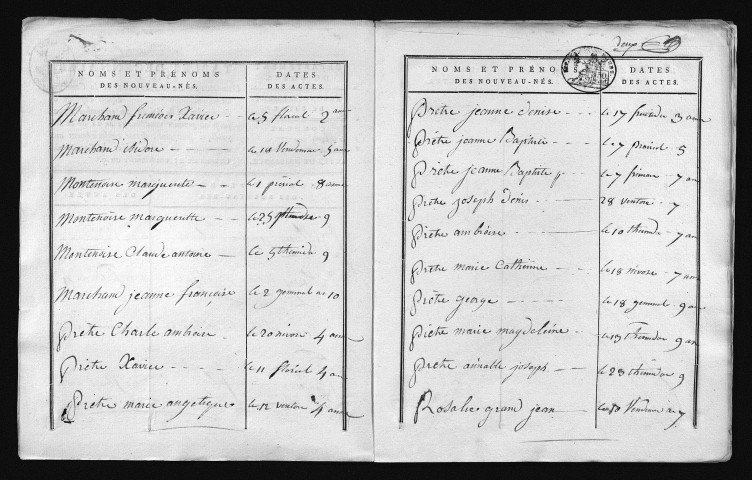 NOMS ET PRÉNOMS
DES NOUVEAU-NÉS.
DATES
DES ACTES.
Marchand françois Xavier le 5 floreal 2 anee
Marchand isidore le 14 Vendemier 5 anee
Montenoire marguerite le 1 prérial 8 anee
Montenoire marguerithe le 25 9
Montenoire Claude antoine le 5 thermidor 9
Marchand jeanne françoise le 2 germinal an 10
Prétre Charle ambroise le 20 nivose 4 anee
Prétre Xavier le 11 floréal 4 anee
Prétre marie angelique le 12 ventose 4 anee
deux
NOMS ET PRÉNO
DES NOUVEAU-NÉS.
DATES
DES ACTES.
Prétre jeanne denise le 17 fructidor 3 anee
Prétre jeanne Baptiste le 7 prairial 5
Prétre jeanne Baptiste le 7 frimaire 7 anee
Prétre joseph denis 28 ventose 7
Prétre ambroise le 10 thermidor 7 anee
Prétre marie Catherine le 18 nivose 7 anee
Prétre george le 18 germinal 9 anee
Prétre marie magdeleine le 13 thermidor 9 anee
Prétre aimable joseph le 23 thermidor 9
Rosalie grand jean Vendemier an 7